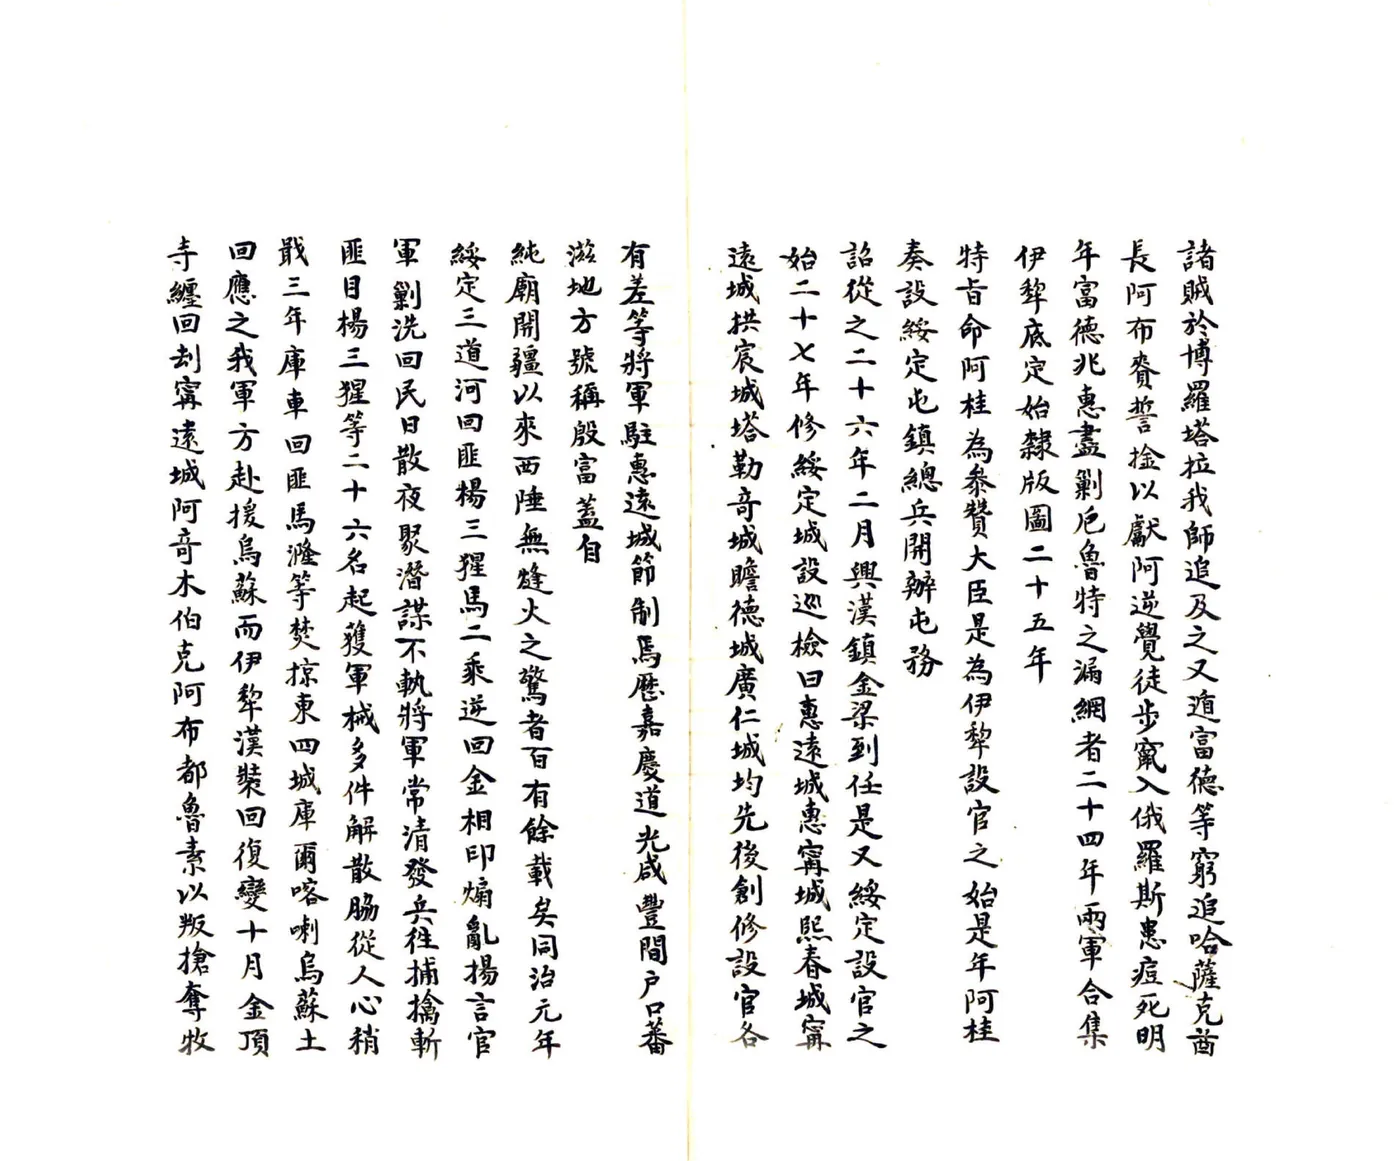 諸賊於博羅塔拉我師追及之又遁富德等窮追哈薩克酋
長阿布賚誓擒以獻阿逆覺徒步竄入俄羅斯患痘死明
年富德兆惠盡剿厄魯特之漏網者二十四年兩軍合集
伊犂底定始隸版圖二十五年
特旨命阿桂為參贊大臣是為伊犂設官之始是年阿桂
奏設綏定屯鎮總兵開辦屯務
詔從之二十六年二月興漢鎮金梁到任是又綏定設官之
始二十七年修綏定城設巡檢曰惠遠城惠甯城熙春城甯
遠城拱宸城塔勒奇城瞻德城廣仁城均先後創修設官各
有差等將軍駐惠遠城節制焉歷嘉慶道光咸豐間户口蕃
滋地方號稱殷富蓋自
純廟開疆以來西陲無燧火之驚者百有餘載矣同治元年
綏定三道河回匪楊三猩馬二乘逆回金相印煽亂揚言官
軍剿洗回民日散夜聚潛謀不軌將軍常清發兵徃捕擒斬
匪目楊三猩等二十六名起獲軍械多件解散脇從人心稍
戢三年庫車回匪馬漋等焚掠東四城庫爾喀喇烏蘇土
回應之我軍方赴援烏蘇而伊犂漢裝回復變十月金頂
寺纏回刦甯遠城阿奇木伯克阿布都魯素以叛搶奪牧